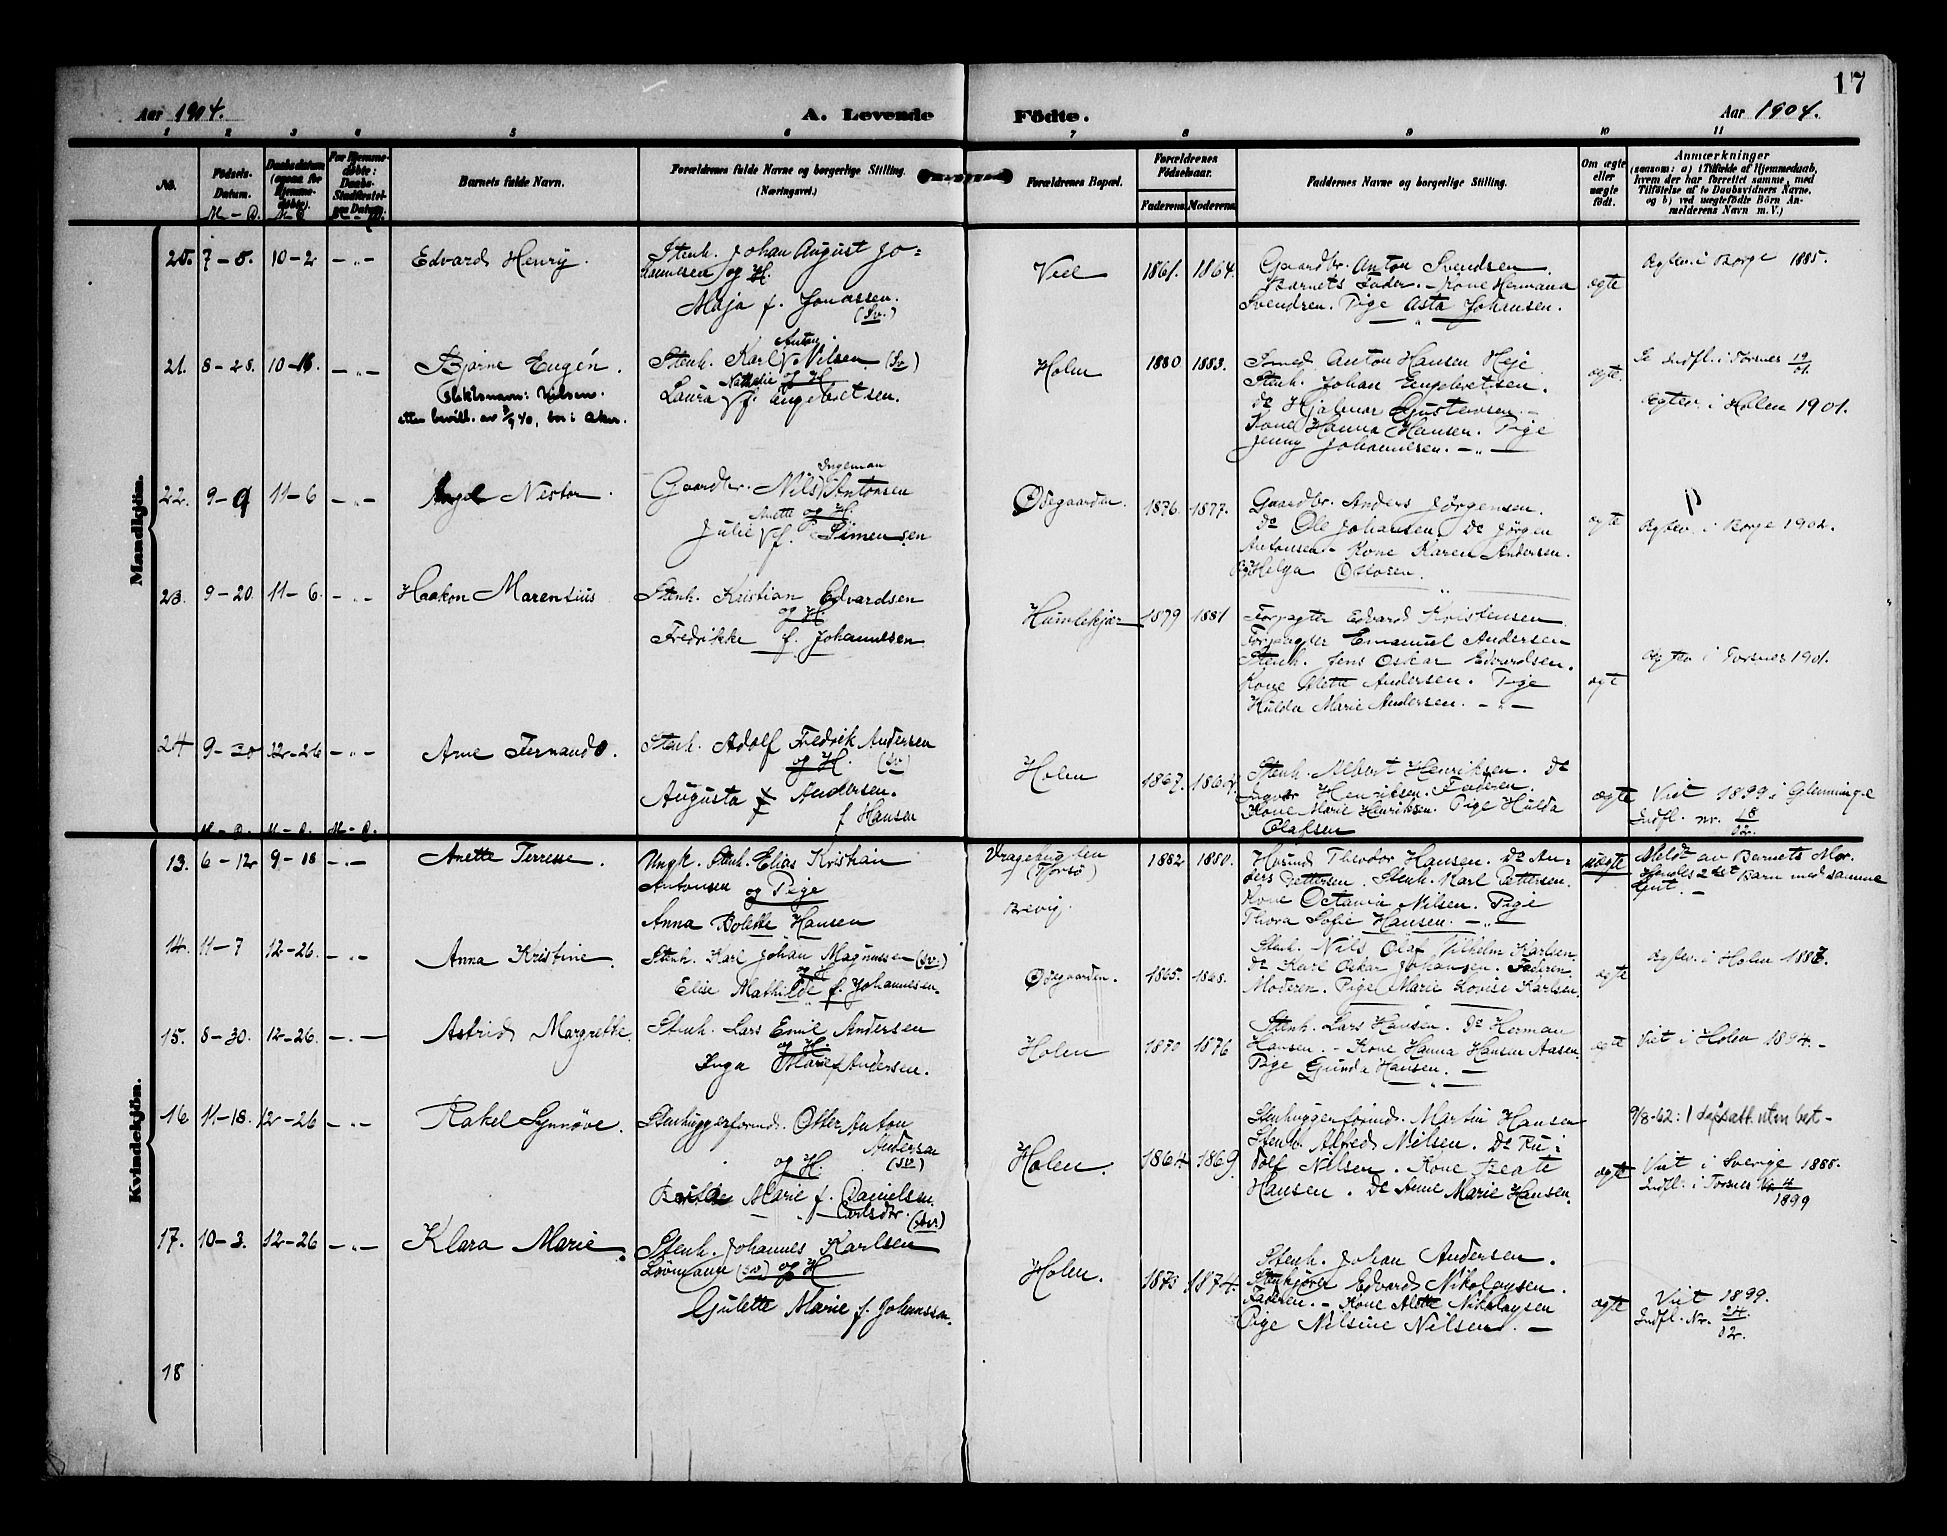 17
Aar 1904.
A. Levende Födte.
Aar 1904.
1 2 3 4 5 6 7 8 9 10 11
No.
Födsels-
Datum.
M – D.
Daabsdatum
(ogsaa for
Hjemme-
döbte).
M D
For Hjemme-
döbte:
Daabs-
Stadfæstel-
sens Datum.
M – D.
Barnets fulde Navn.
Forældrenes fulde Navne og borgerlige Stilling.
(Næringsvei.)
Forældrenes Bopæl.
Forældrenes
Födselsaar.
Faderens. Moderens.
Faddernes Navne og borgerlige Stilling.
Om ægte
eller
uægte
födt.
Anmærkninger
(saasom: a) i Tilfælde af Hjemmedaab,
hvem der har forrettet samme, med
Tilföielse af to Daabsvidners Navne,
og b) ved uægtefödte Börn An-
melderens Navn m. V.)
Mandkjön.
20. 7–8. 10–2 –„–
Edvard Henry.
Stenh. Johan August Jo-
hannesen og H.
Maja f. Jonassen.
(Sv.)
Viel
1861. 1864.
Gaardbr. Anton Svendsen.
Barnets Fader. – Kone Hermana
Svendsen. Pige Asta Johansen.
ægte
Ægtev. i Borge 1885.
21. 8–28. 10–16 –„–
Bjarne Eugén.
Slektsnavn: Nilsen.
etter bevill. av 40, bor i Aker.
Anton
Stenh. Karl V Nilsen (Sv)
Nathalie og H
Laura V f. Engebretsen.
Holen
1880 1883.
Smed Anton Hansen Heje
Stenh. Johan Engebretsen.
Do Hjalmar Gustavsen. –
Kone Hanna Hansen. Pige
Jenny Johannesen. –„–
ægte.
Se Indfl. i Torsnes 19/01.
Ægtev. i Holen 1901.
22. 9–9 11–6 –„–
Nestor.
Ingeman
Gaardbr. Nils V Antonsen
Anette og H
Julie V f. Simensen
Ødegaarden.
1876. 1877.
Gaardbr. Anders Jørgensen.
Do Ole Johansen. Do Jørgen
Antonsen – Kone Karen Andersen.
Pige Helga Olosen.
ægte
Ægtev. i Borge 1902.
23. 9–20 11–6. –„–
Haakon Marensius
Stenh. Kristian Edvardsen
og H
Fredrikke f. Johannesen
Humlekjær
1879 1881
Forpagter Edvard Kristensen.
Forpagter Emanuel Andersen
Stenh. Jens Oskar Edvardsen.
Kone Alette Andersen. Pige
Hulda Marie Andersen. –„–
ægte
Ægtev. i Torsnes 1901.
24 9–20 12–26 –„–
Arne Fernando.
Stenh. Adolf Fredrik Andersen
og H. (Sv)
Augusta f Andersen.
f Hansen
Holen
1867. 1864.
Stenh. Albert Henriksen. Do
Ingvar Henriksen. Faderen.
Kone Marie Henriksen. Pige Hulda
Olafsen
ægte
Viet 1899 i Glemminge
Indfl. nr. 18/02.
Kvindekjön.
M – D. M – D. M – D.
13. 6–12 9–18 –„–
Anette Terrese.
Ungk. Stenh. Elias Kristian
Antonsen og Pige
Anna Bolette Hansen
(Torsø)
Brevig.
1882 1880.
Husmd Theodor Hansen. Do An-
ders Pettersen. Stenh. Karl Pettersen.
Kone Octavia Nilsen. Pige
Thora Sofie Hansen. –„–
uægte
Meldt av Barnets Mor.
Hendes 2det Barn med samme
Gut. –
14. 11–7 12–26. –„–
Anna Kristine.
Stenh. Karl Johan Magnussen (Sv.)
og H
Elise Mathilde f. Johannesen.
Ødegaarden.
1865. 1868.
Stenh. Nils Olaf Vilhelm Karlsen.
Do Karl Oskar Johansen. Faderen.
Moderen. Pige Marie Lovise Karlsen.
ægte
Ægtev. i Holen 1887.
15. 8–30. 12–26. –„–
Astrid Margrethe.
Stenh. Lars Emil Andersen
og H.
Inga Marie f Andersen.
Holen
1870 1876
Stenh. Lars Hansen. Do Herman
Hansen. – Kone Hanna Hansen Aasen
Pige Gunda Hansen. –
ægte
Viet i Holen 1894. –
16 11–18. 12–26 –„–
Rakel Synnøve.
Stenhuggerformd. Otter Anton
Andersen
og H. (Sv)
Marie f. Danielsen.
Carlsdtr. (Sv.)
Holen.
1864 1869.
Stenhuggerformd. Martin Hansen
Stenh. Alfred Nilsen. Do Ru-
dolf Nilsen. Kone Beate
Hansen. Do Anne Marie Hansen.
ægte
9/8-62: 1 dåpsatt. uten bet –
Viet i Sverige 1888.
Indfl. i Torsnes Nr 4/1899
17. 10–3. 12–26 –„–
Klara Marie.
Stenh. Johannes Karlsen
Lövmann (Sv) og H
Gulette Marie f. Johansson.
Holen.
1873 1874.
Stenh. Johan Andersen.
Stenkjører Edvard Nikolaysen.
Faderen. – Kone Alette Nikolaysen
Pige Nilsine Nilsen. –
ægte
Viet 1899.
Indfl. Nr. 24/02.
18